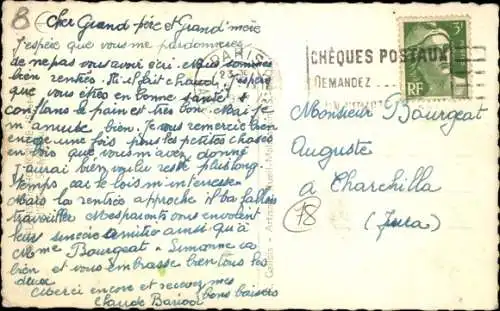 8
Cher Grand-père et Grand'mère
J'espère que vous me pardonnerez
de ne pas vous avoir écri. Nous sommes
bien rentrés. Ici il fait chaud. J'espère
que vous êtes en bonne santé
le pain est très bon. Moi je
m'amuse bien. Je vous remercie bien
encore une fois pour les petites choses
que vous m'avez donné
J'aurai bien voulu resté plus long
temps car le bois m'interesse
Mais la rentrée approche il va falloir
travailler Mes parents vous envoient
leur sincère amitié ainsi qu'à
Mme Bourgeat - Simonne va
bien et vous embrasse bien tous les
deux
Merci encore et recevez mes
bons baisers
Claude
PARIS
CHÈQUES POSTAUX
DEMANDEZ...
3F
RF
Monsieur Bourgeat
Auguste
à Charchilla
(Jura)
78